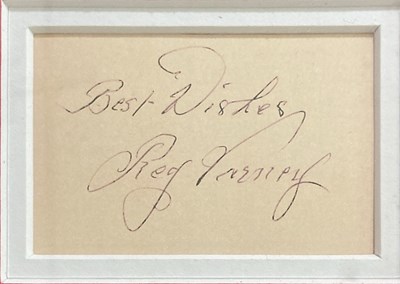 Best Wishes
Reg Varney